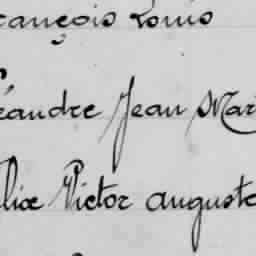 rançois Louis
éandre Jean Mari
lix Victor auguste